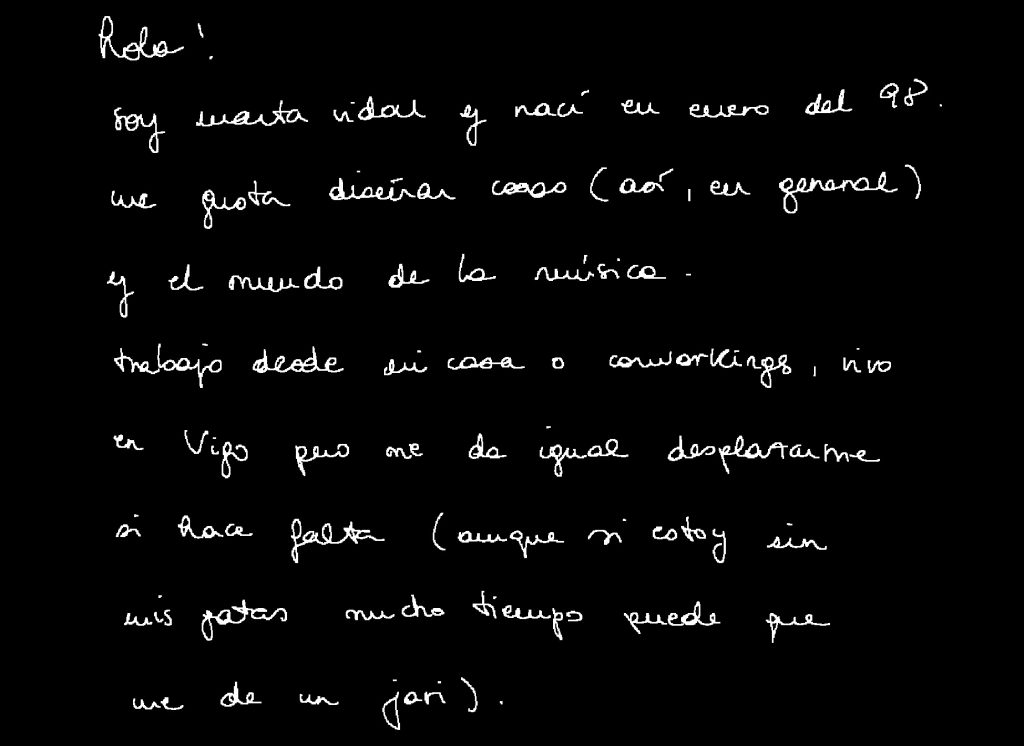 hola!
soy marta vidal y nací en enero del 98.
me gusta diseñar cosas (así, en general)
y el mundo de la música.
trabajo desde mi casa o coworkings, vivo
en Vigo pero me da igual desplazarme
si hace falta (aunque si estoy sin
mis gatas mucho tiempo puede que
me de un jari).